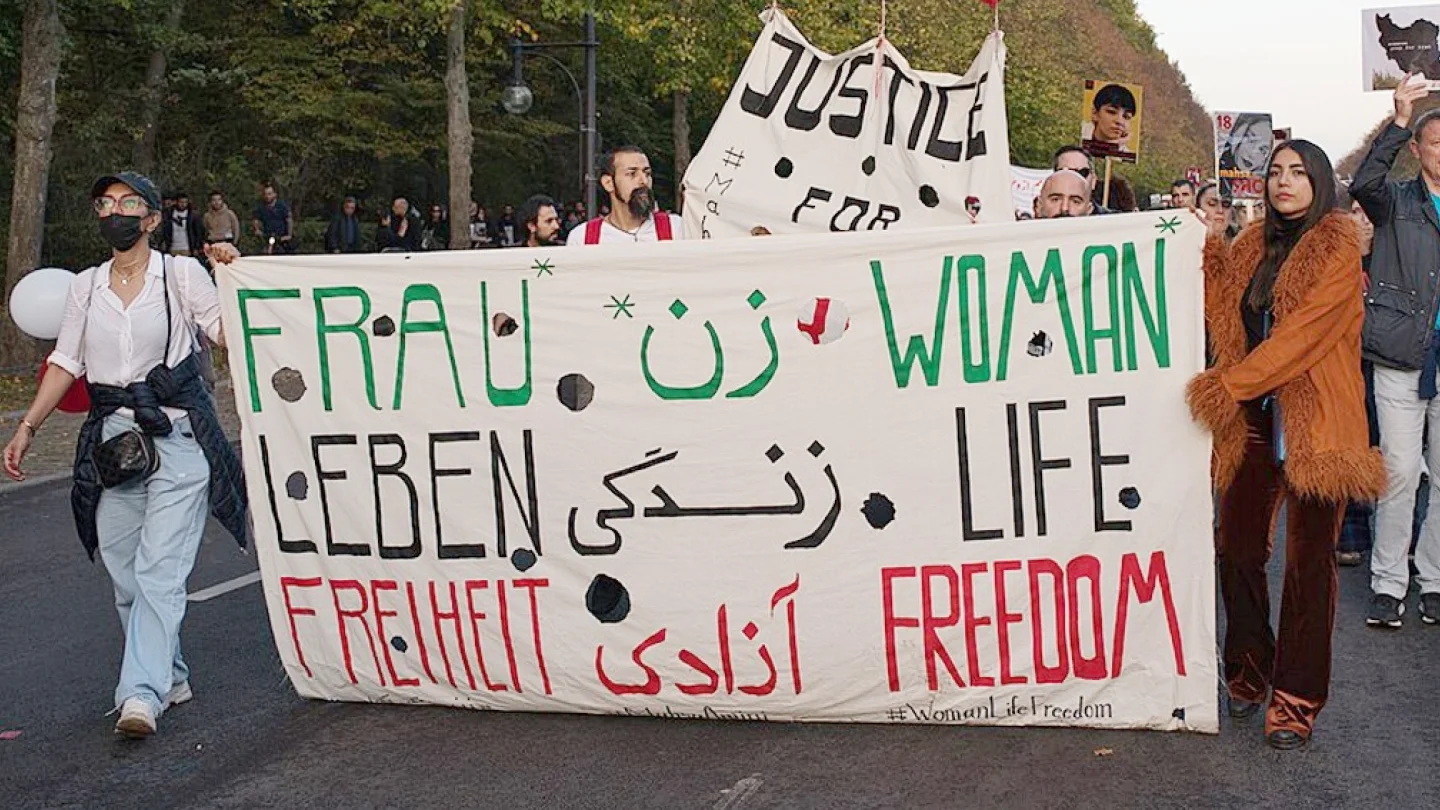 JUSTICE
FOR
18
FRAU* *زن WOMAN*
LEBEN زندگی LIFE
FREIHEIT آزادی FREEDOM
#WomanLifeFreedom